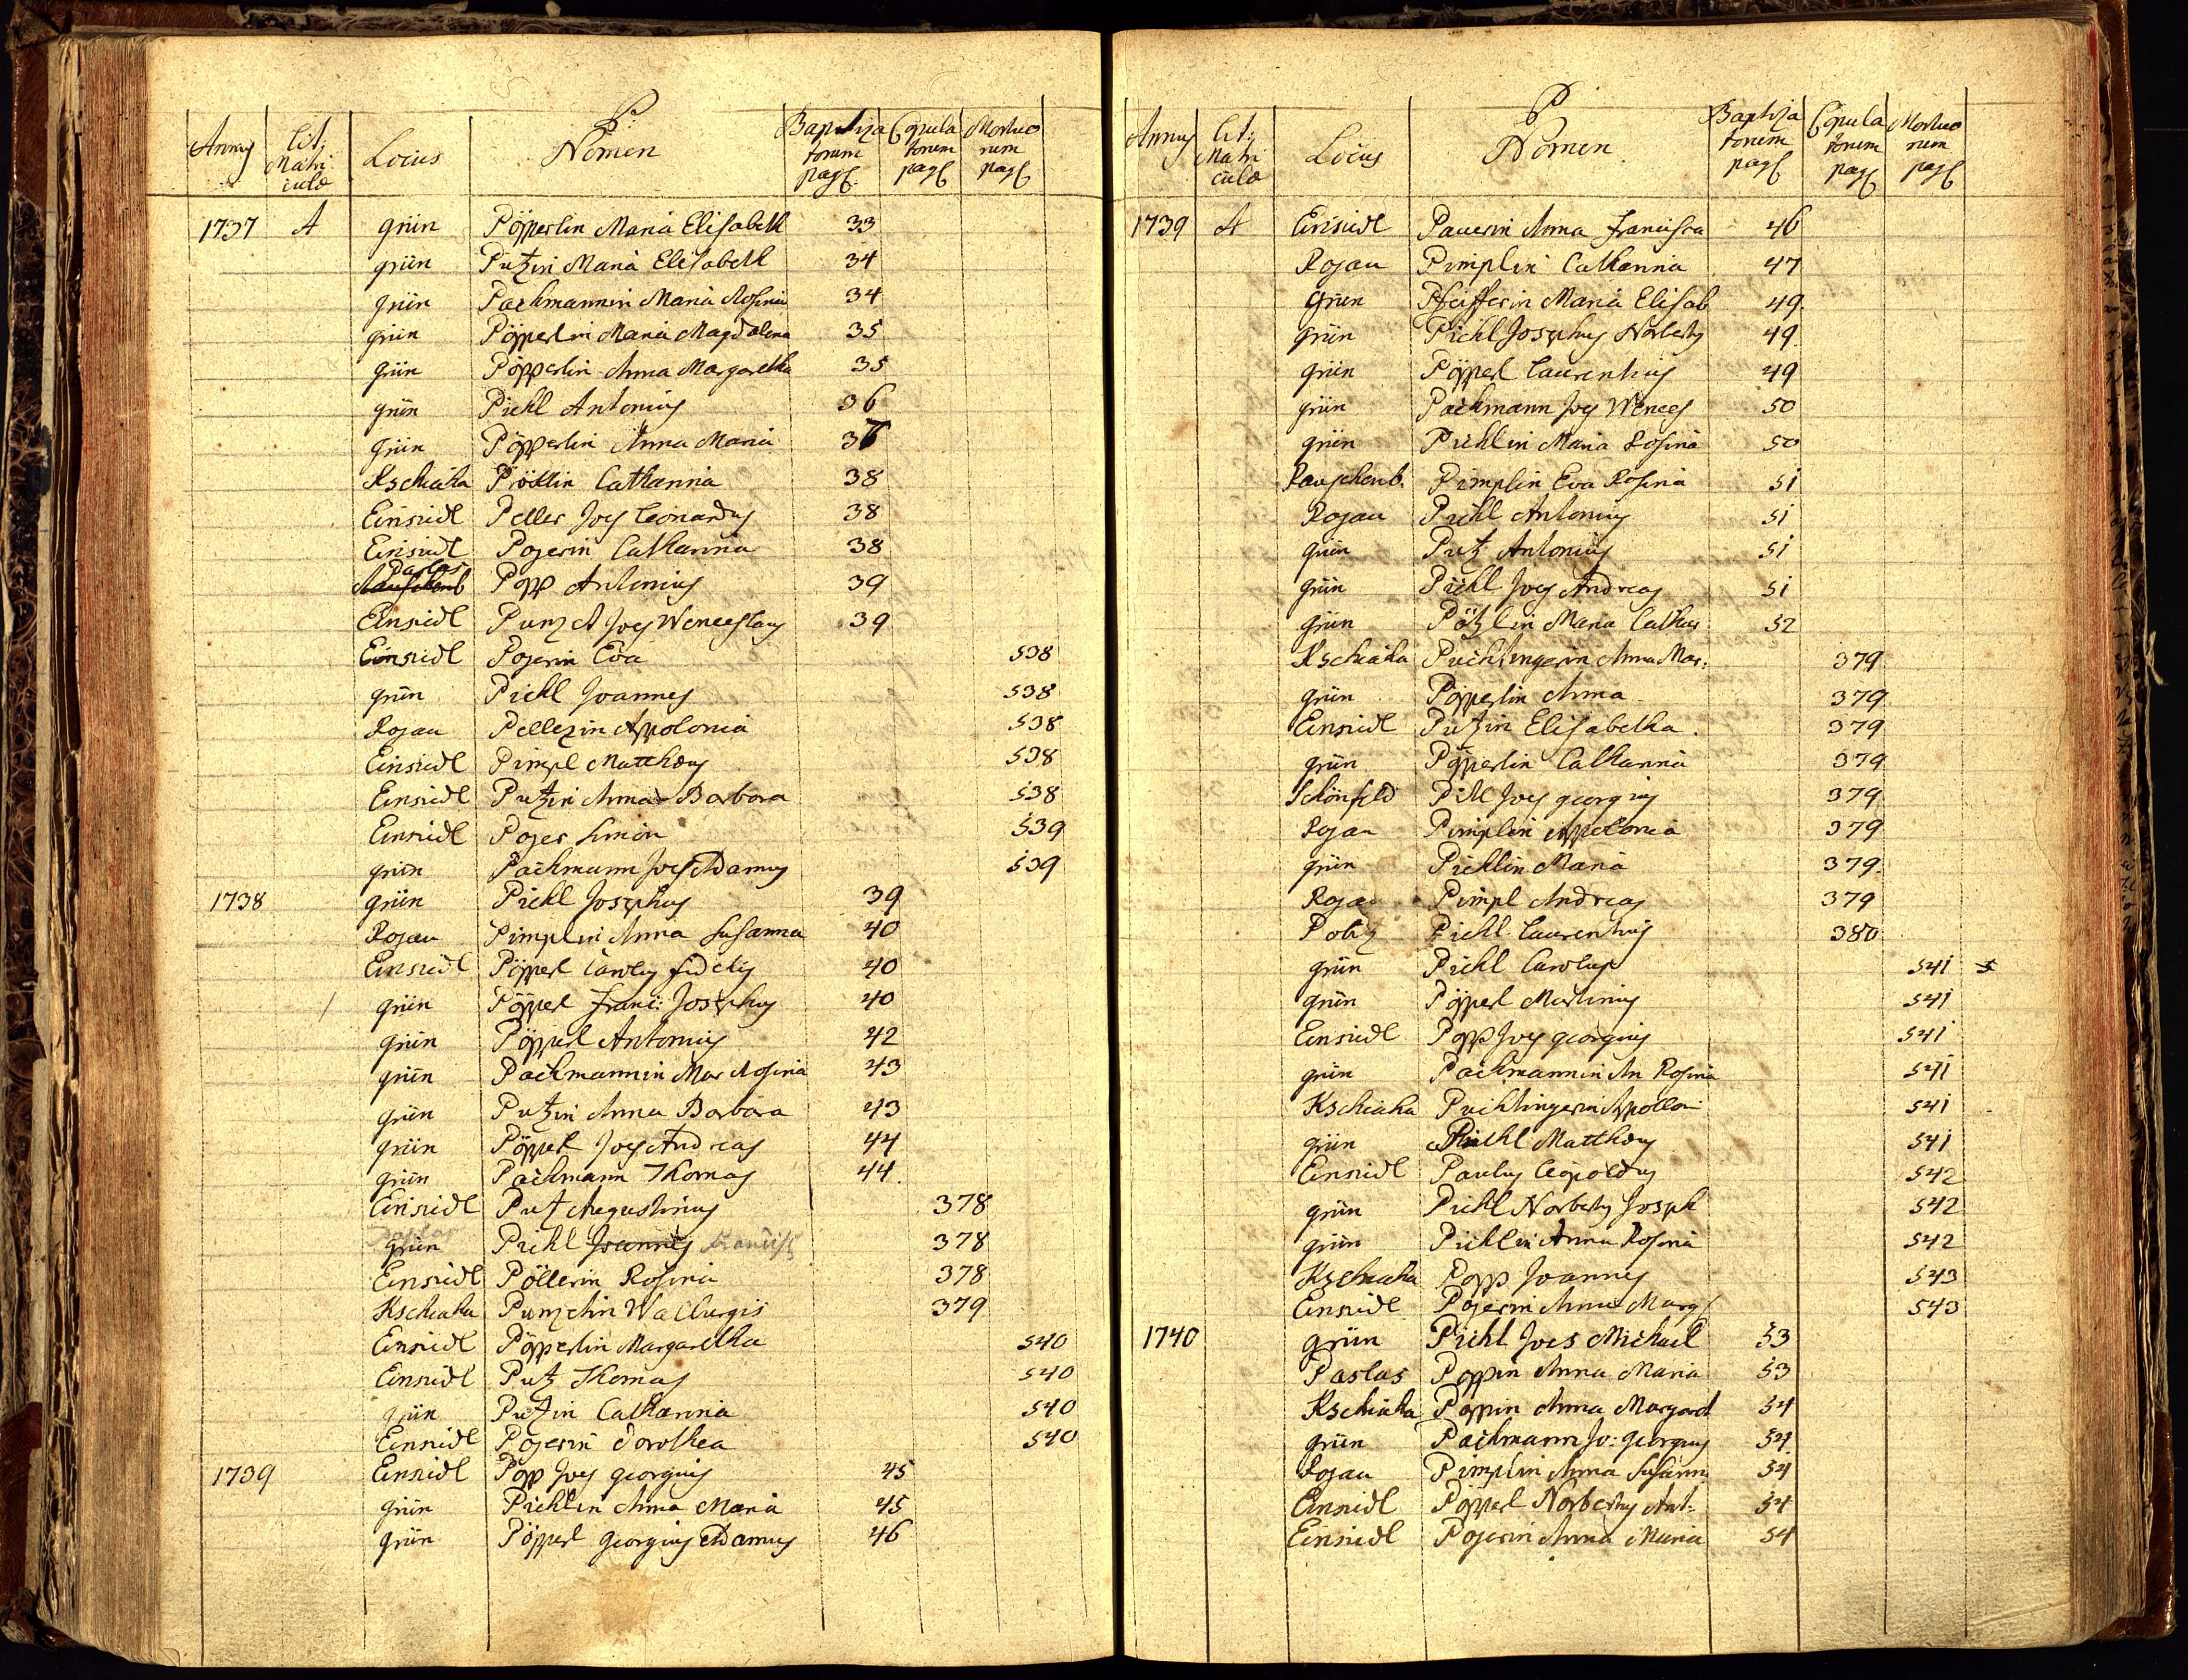 P.
Annus Lit: Matriculæ Locus Nomen Baptizatorum pag. Copulatorum pag. Mortuorum pag.
1737 A grün Pöpperlin Maria Elisabeth 33
grün Putzin Maria Elisabeth 34
grün Pachmannin Maria Rosina 34
grün Pöpperlin Maria Magdalena 35
grün Pöpperlin Anna Margaretha 35
grün Pichl Antonius 36
grün Pöpperlin Anna Maria 36
Kschiaha Catharina 38
Einsiedl Peller Joes Leonardus 38
Einsiedl Pojerin Catharina 38
Paslas Popp Antonius 39
Einsiedl Joes Wenceslaus 39
Einsiedl Pojerin Eva 538
grün Pichl Joannes 538
Rojau Appolonia 538
Einsiedl Pimpl Matthæus 538
Einsiedl Putzin Anna Barbara 538
Einsiedl Pojer Simon 539
grün Pachmann Joes Adamus 539
1738 grün Pichl Josephus 39
Rojau Pimplin Anna Susanna 40
Einsiedl Pöpperl Carolus Fidelis 40
grün Pöpperl Franc: Josephus 40
grün Pöpperl Antonius 42
grün Pachmannin Mar Rosina 43
grün Putzin Anna Barbara 43
grün Pöpperl Joes Andreas 44
grün Pachmann Thomas 44.
Einsiedl Putz Augustinus 378
Paslas
grün Pichl Joannes Francisc 378
Einsiedl Pöllerin Rosina 378
Kschiaha Walburgis 379
Einsiedl Pöpperlin Margaretha 540
Einsiedl Putz Thomas 540
grün Putzin Catharina 540
Einsiedl Pojerin Dorothea 540
1739 Einsiedl Popp Joes georgius 45
grün Pichlin Anna Maria 45
grün Pöpperl georgius Adamus 46
P.
Annus Lit: Matriculæ Locus Nomen Baptizatorum pag. Copulatorum pag. Mortuorum pag.
1739 A Einsiedl Pauerin Anna Francisca 46
Rojau Pimplin Catharina 47
Grün Pfeifferin Maria Elisab 49.
grün Pichl Josephus Norbertus 49.
grün Pöpperl Laurentius 49
grün Pachmann Joes Wences 50
grün Pichlin Maria Rosina 50
Rauschenb. Pimplin Eva Rosina 51
Rojau Pichl Antonius 51
grün Putz Antonius 51
grün Pichl Joes Andreas 51
grün Pötzlin Maria Cathar 52
Kschiaha Puchtingerin Anna Mar: 379
grün Pöpperlin Anna 379
Einsiedl Putzin Elisabetha. 379
grün Pöpperlin Catharina 379
Schönfeld Joes georgius 379
Rojau Pimplin Appolonia 379
grün Pichlin Maria 379.
Rojau Pimpl Andreas 379
Pichl Laurentius 380
grün Pichl Carolus 541
grün Pöpperl Martinus 541
Einsiedl Popp Joes georgius 541
grün Pachmannin An Rosina 541
Kschiaha Puchtingerin Appolloni 541
grün Pichl Matthæus 541
Einsiedl Paulus Leopoldus 542
grün Pichl Norbertus Joseph 542
grün Pichlin Anna Rosina 542
Kschiaha Popp Joannes 543
Einsiedl Pojerin Anna Marg 543
1740 grün Pichl Joes Michael 53
Paslas Poppin Anna Maria 53
Kschiaha Poppin Anna Margaret 54
grün Pachmann Jo: georgius 54.
Rojau Pimplin Anna Susann 54
Einsiedl Pöpperl Norbertus Ant. 54
Einsiedl Pojerin Anna Maria 54